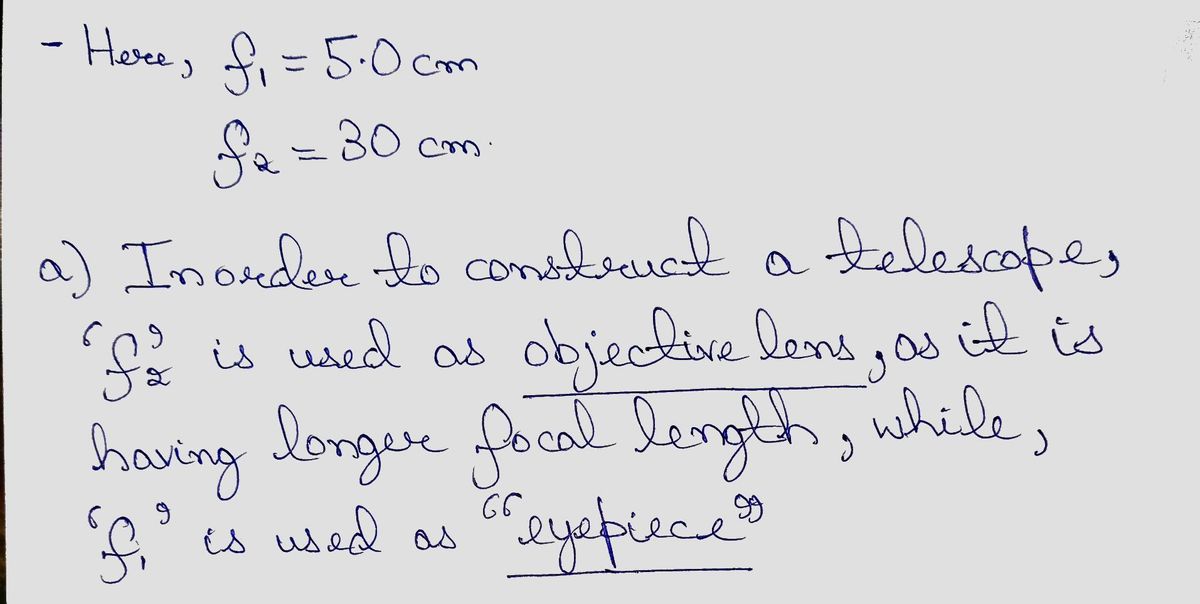 - Here, f₁ = 5.0 cm
f₂ = 30 cm.
a) Inorder to construct a telescope,
'f₂' is used as objective lens, as it is
having longer focal length, while,
'f₁' is used as "eyepiece"